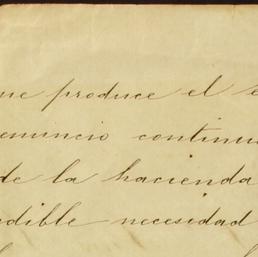 ue produce el e
enuncio continu
de la hacienda
udible necesidad